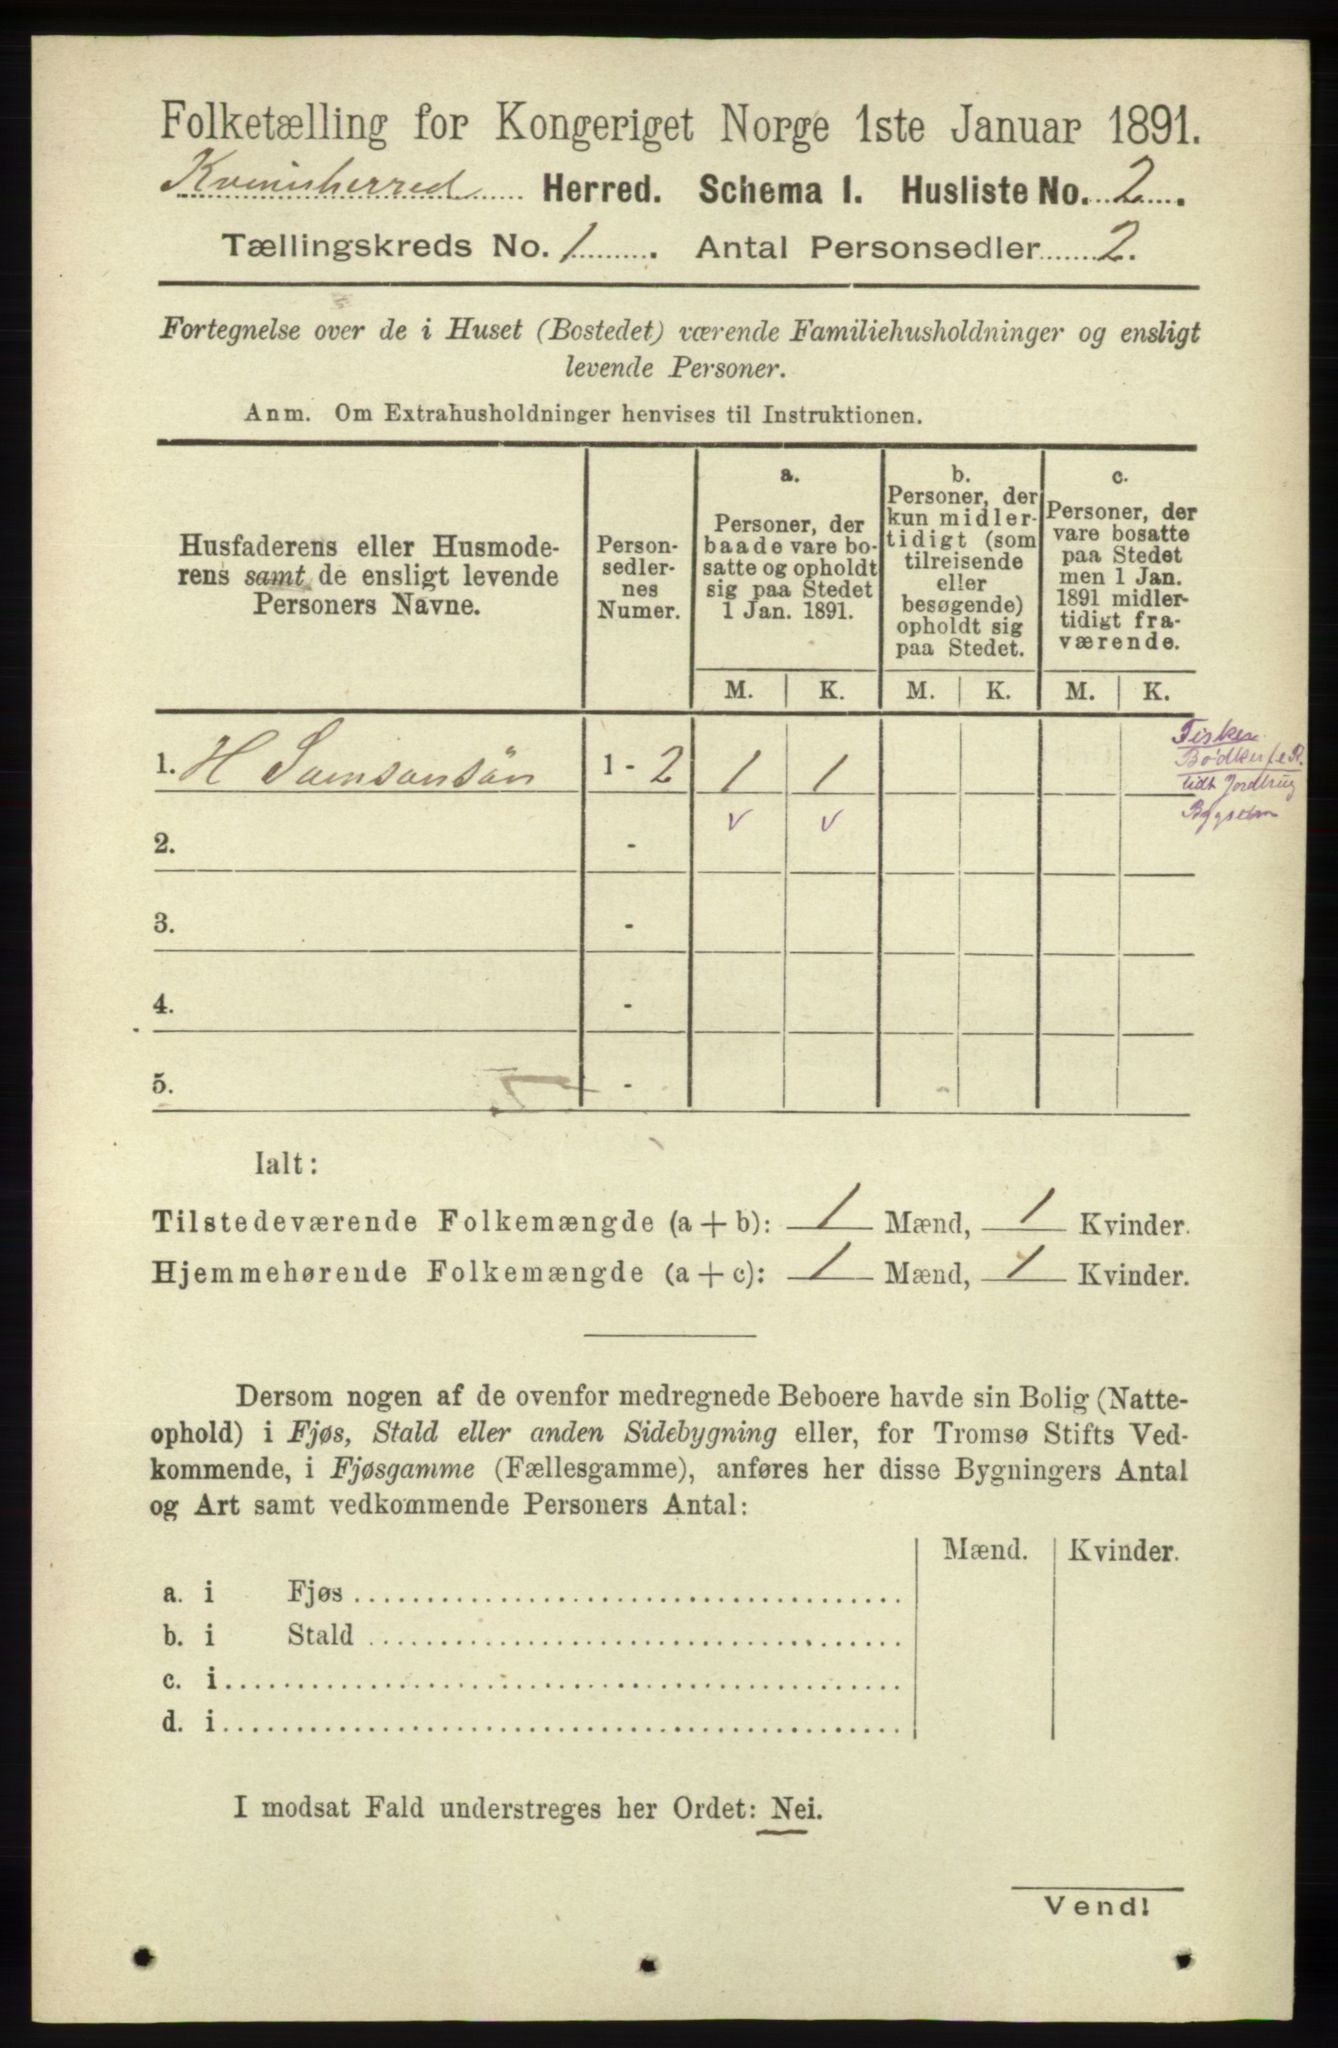 Folketælling for Kongeriget Norge 1ste Januar 1891.
Kvinnherred Herred. Schema I. Husliste No. 2.
Tællingskreds No. 1. Antal Personsedler 2.
Fortegnelse over de i Huset (Bostedet) værende Familiehusholdninger og ensligt
levende Personer.
Anm. Om Extrahusholdninger henvises til Instruktionen.
Husfaderens eller Husmode-
rens samt de ensligt levende
Personers Navne.
Person-
sedler-
nes
Numer.
a.
Personer, der
baade vare bo-
satte og opholdt
sig paa Stedet
1 Jan. 1891.
b.
Personer, der
kun midler-
tidigt (som
tilreisende
eller
besøgende)
opholdt sig
paa Stedet.
c.
Personer, der
vare bosatte
paa Stedet
men 1 Jan.
1891 midler-
tidigt fra-
værende.
M. K. M. K. M. K.
1. H Samsonsön 1 - 2 1 1
Fisker
Bødker f. e. R.
lidt Jordbrug
v v
2. -
3. -
4. -
5. -
Ialt:
Tilstedeværende Folkemængde (a + b): 1 Mænd, 1 Kvinder.
Hjemmehørende Folkemængde (a + c): 1 Mænd, 1 Kvinder.
Dersom nogen af de ovenfor medregnede Beboere havde sin Bolig (Natte-
ophold) i Fjøs, Stald eller anden Sidebygning eller, for Tromsø Stifts Ved-
kommende, i Fjøsgamme (Fællesgamme), anføres her disse Bygningers Antal
og Art samt vedkommende Personers Antal:
Mænd. Kvinder.
a. i Fjøs
b. i Stald
c. i
d. i
I modsat Fald understreges her Ordet: Nei.
Vend!